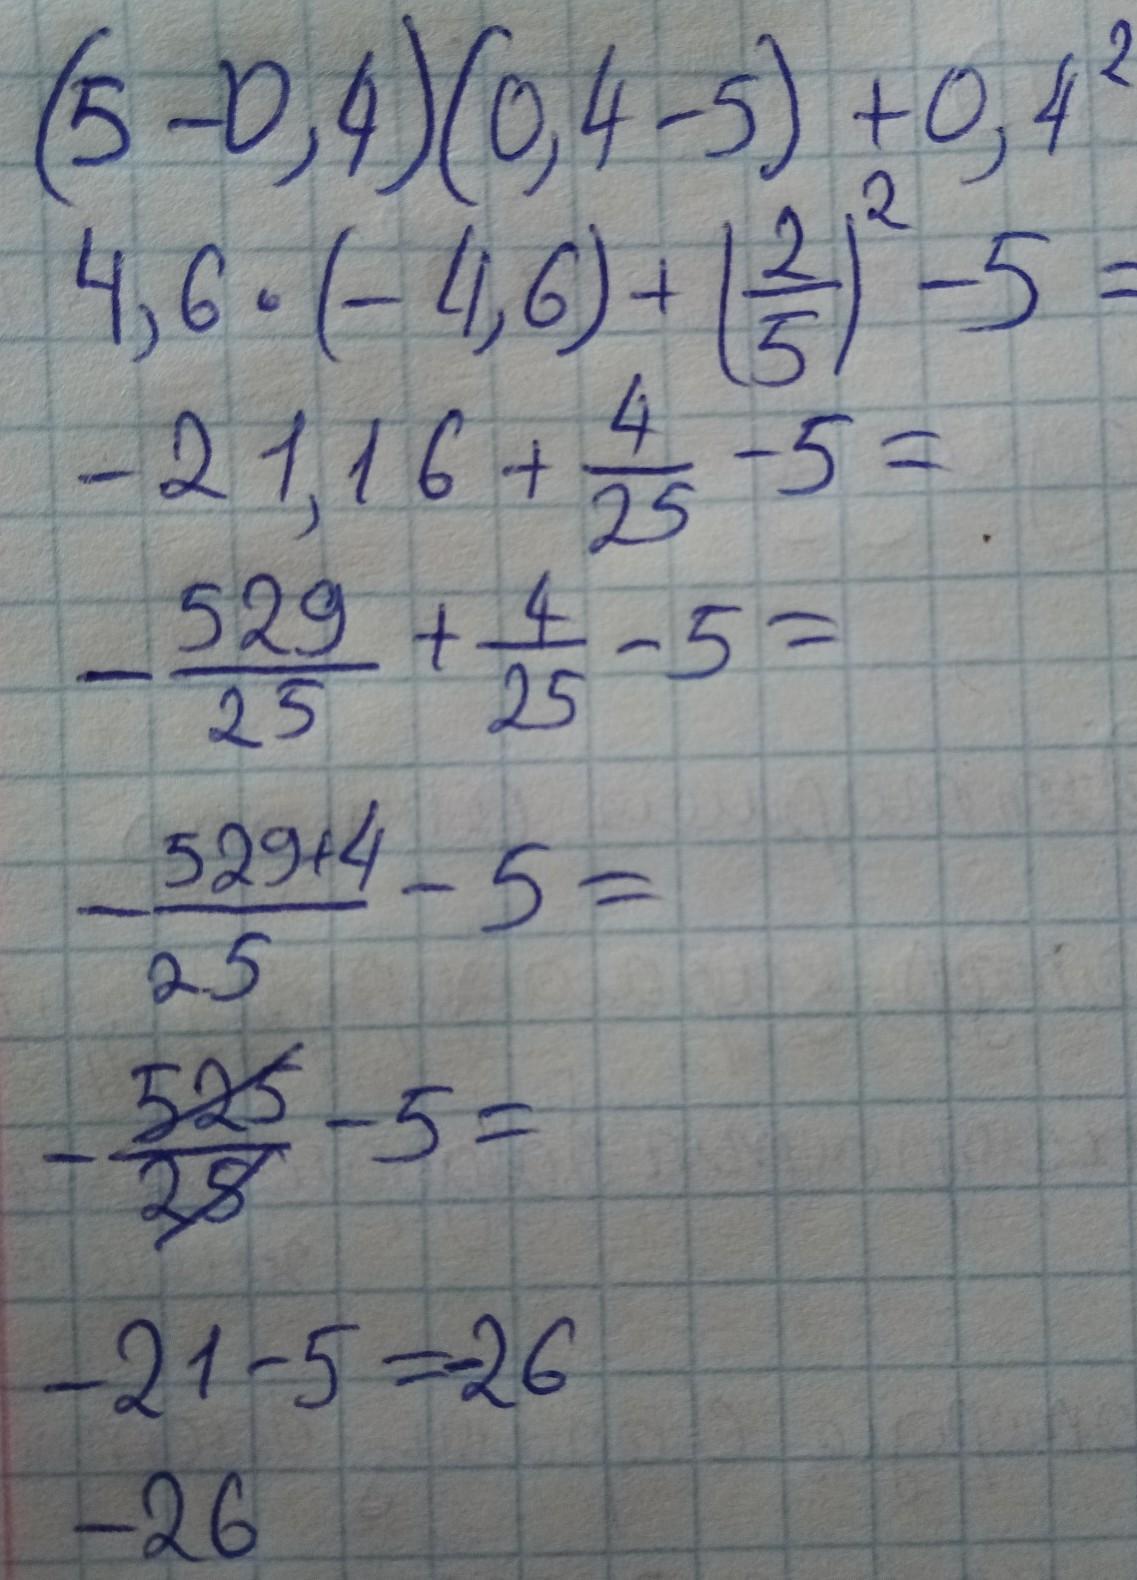 (5-0,4)(0,4-5)+0,4²
4,6·(-4,6)+(2/5)²-5=
-21,16+4/25-5=
-529/25+4/25-5=
-529+4/25-5=
-525/25-5=
-21-5=-26
-26